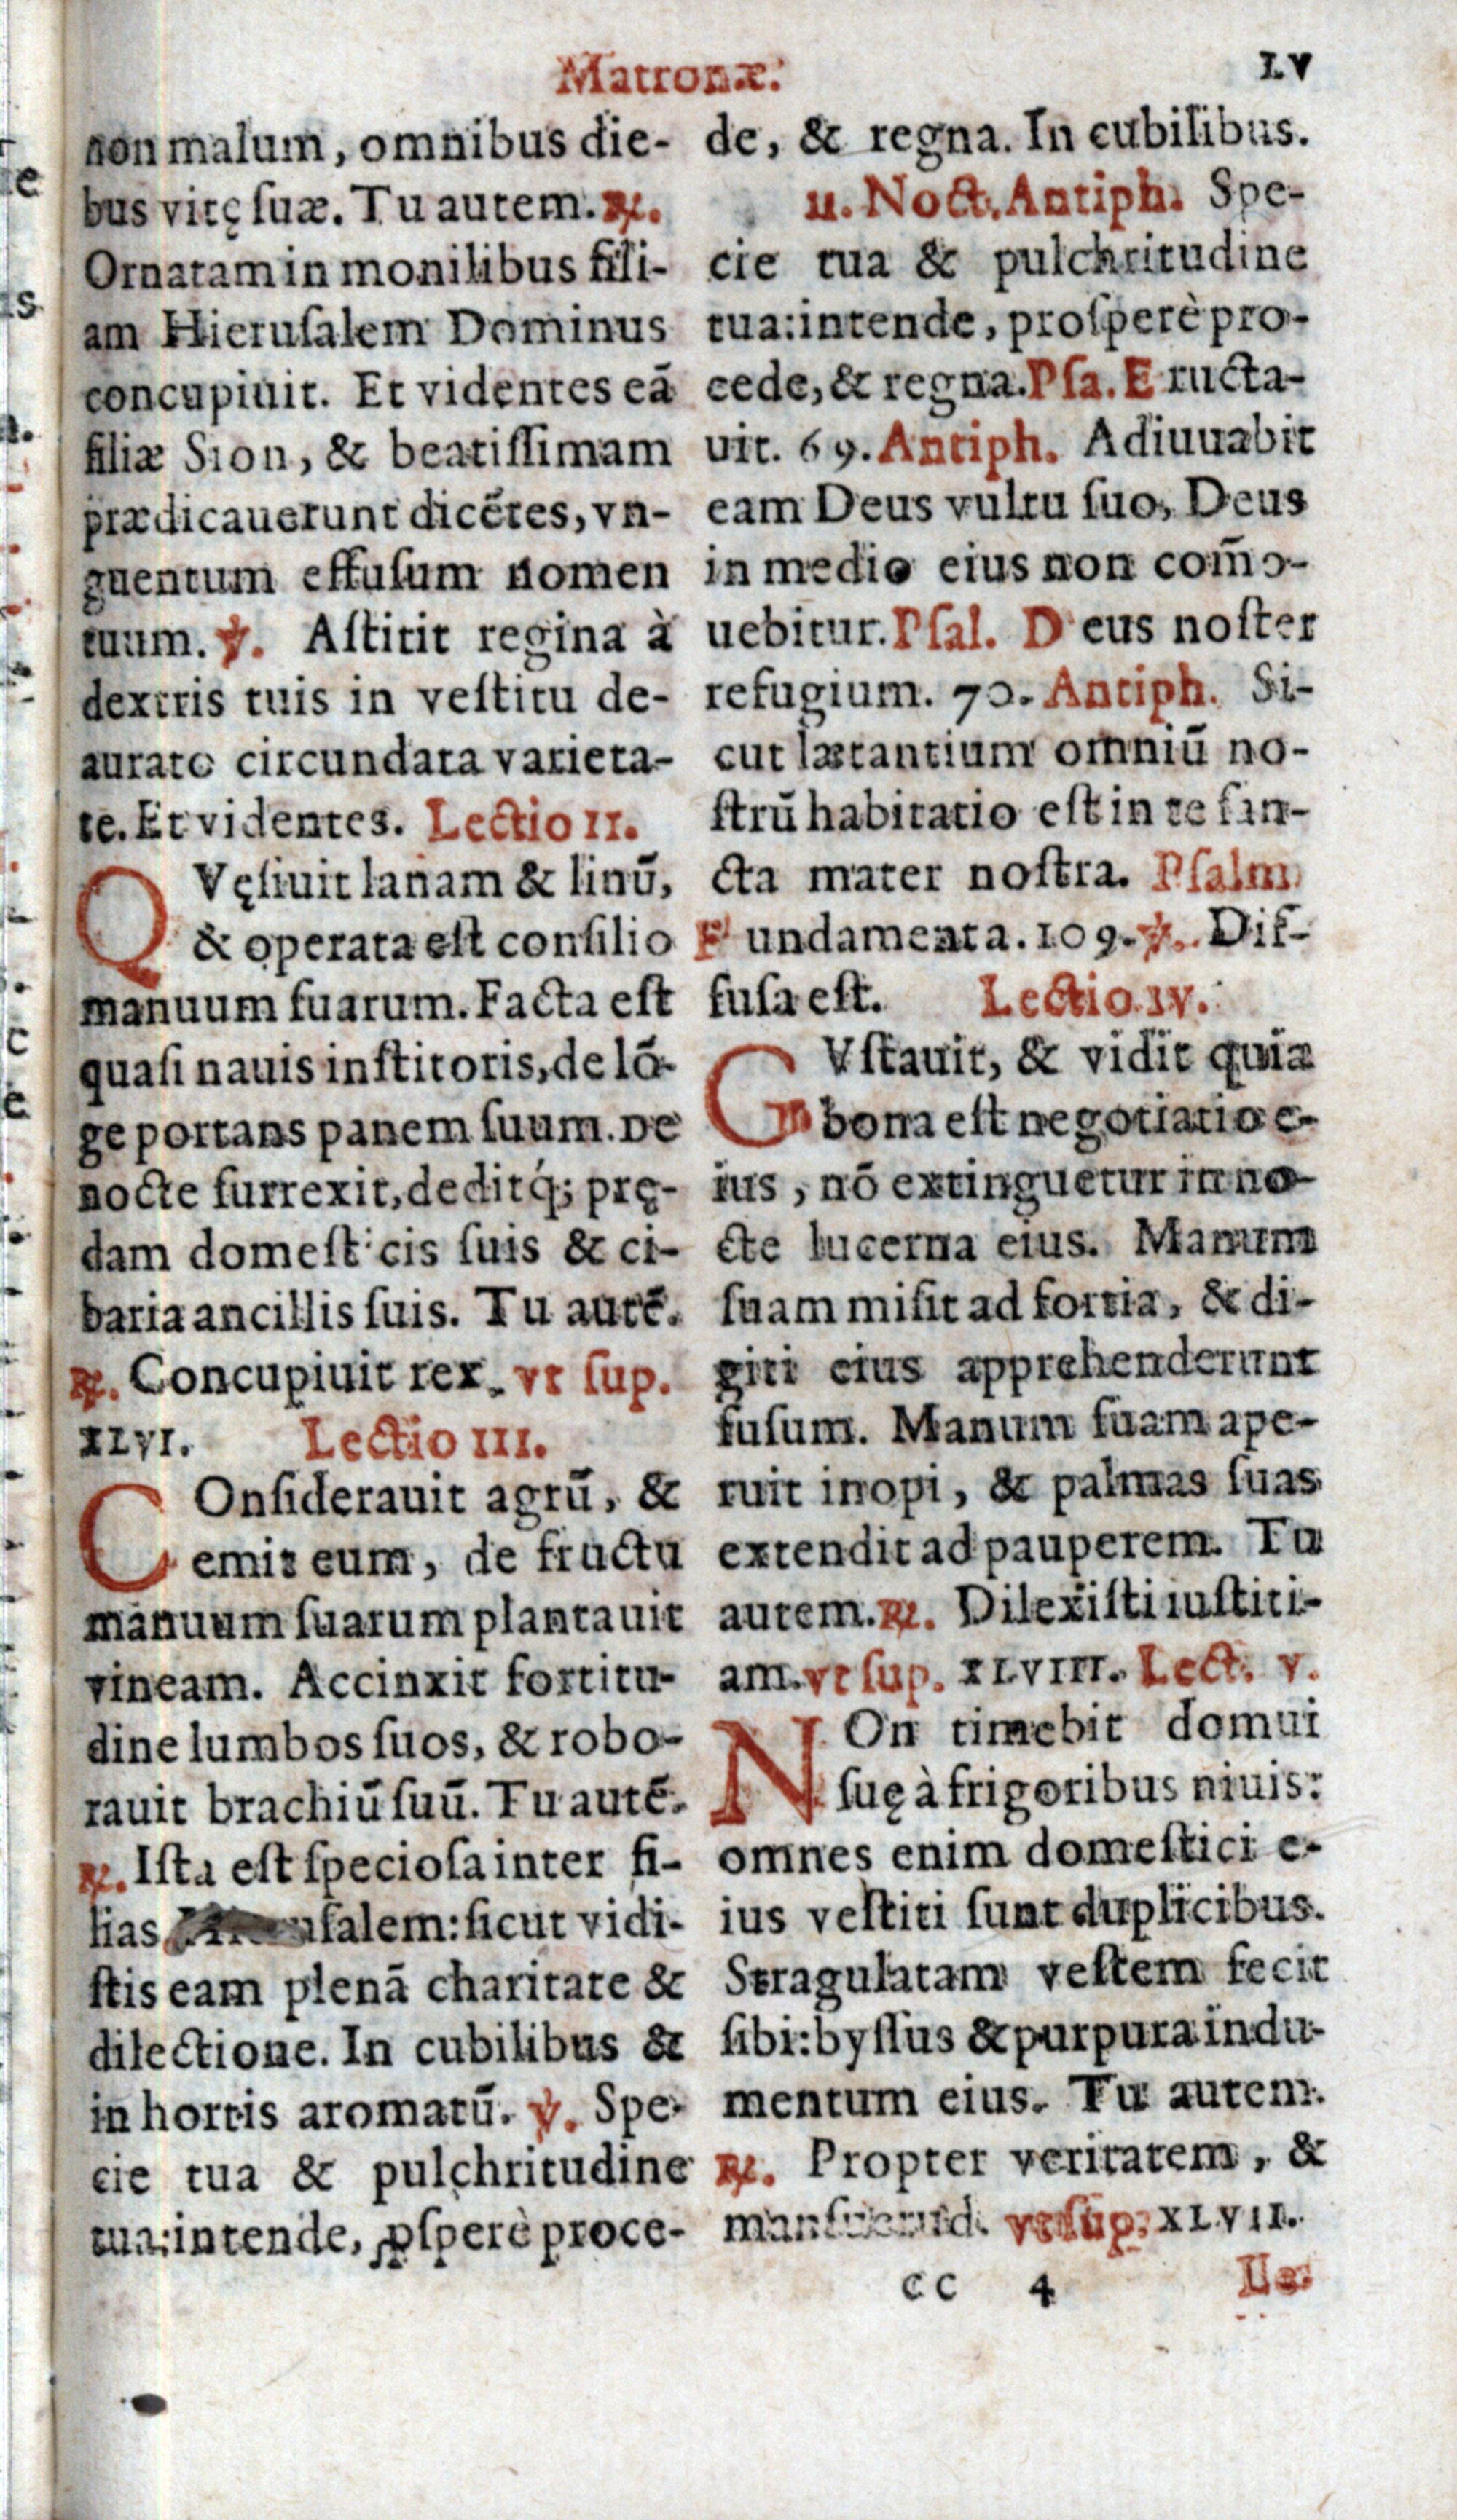 Matronæ.
LV
non malum, omnibus die-
bus vitę ſuæ. Tu autem. ℟.
Ornatam in monilibus fili-
am Hieruſalem Dominus
concupiuit. Et videntes eã
filiæ Sion, & beatiſſimam
prædicauerunt dicẽtes, vn-
guentum effuſum nomen
tuum. ℣. Aſtitit regina à
dextris tuis in veſtitu de-
aurato circundata varieta-
te. Et videntes. Lectio II.
QVęſiuit lanam & linũ,
& operata eſt conſilio
manuum ſuarum. Facta eſt
quaſi nauis inſtitoris, de lõ-
ge portans panem ſuum. De
nocte ſurrexit, deditq́; prę-
dam domeſt cis ſuis & ci-
baria ancillis ſuis. Tu autẽ.
℟. Concupiuit rex. vt ſup.
XLVI. Lectio III.
COnſiderauit agrũ, &
emit eum, de fructu
manuum ſuarum plantauit
vineam. Accinxit fortitu-
dine lumbos ſuos, & robo-
rauit brachiũ ſuũ. Tu autẽ.
℟. Iſta eſt ſpecioſa inter fi-
lias uſalem: ſicut vidi-
ſtis eam plenã charitate &
dilectione. In cubilibus &
in hortis aromatũ. ℣. Spe-
cie tua & pulchritudine
tua: intende, ꝓſperè proce-
de, & regna. In cubilibus.
II. Noct. Antiph. Spe-
cie tua & pulchritudine
tua: intende, proſperè pro-
cede, & regna. Pſa. E ructa-
uit. 69. Antiph. Adiuuabit
eam Deus vultu ſuo, Deus
in medio eius non com̃o-
uebitur. Pſal. D eus noſter
refugium. 70. Antiph. Si-
cut lætantium omniũ no-
ſtrũ habitatio eſt in te ſan-
cta mater noſtra. Pſalm
F undamenta. 109. ℣. Dif-
fuſa eſt. Lectio IV.
GVſtauit, & vidit quia
bona eſt negotiatio e-
ius, nõ extinguetur in no-
cte lucerna eius. Manum
ſuam miſit ad fortia, & di-
giti eius apprehenderunt
fuſum. Manum ſuam ape-
ruit inopi, & palmas ſuas
extendit ad pauperem. Tu
autem. ℟. Dilexiſti iuſtiti-
am. vt ſup. XLVIII. Lect. V.
NOn timebit domui
ſuę à frigoribus niuis:
omnes enim domeſtici e-
ius veſtiti ſunt duplicibus.
Stragulatam veſtem fecit
ſibi: byſſus & purpura indu-
mentum eius. Tu autem.
℟. Propter veritatem, &
manſuetud. vt ſup. XLVII.
cc 4